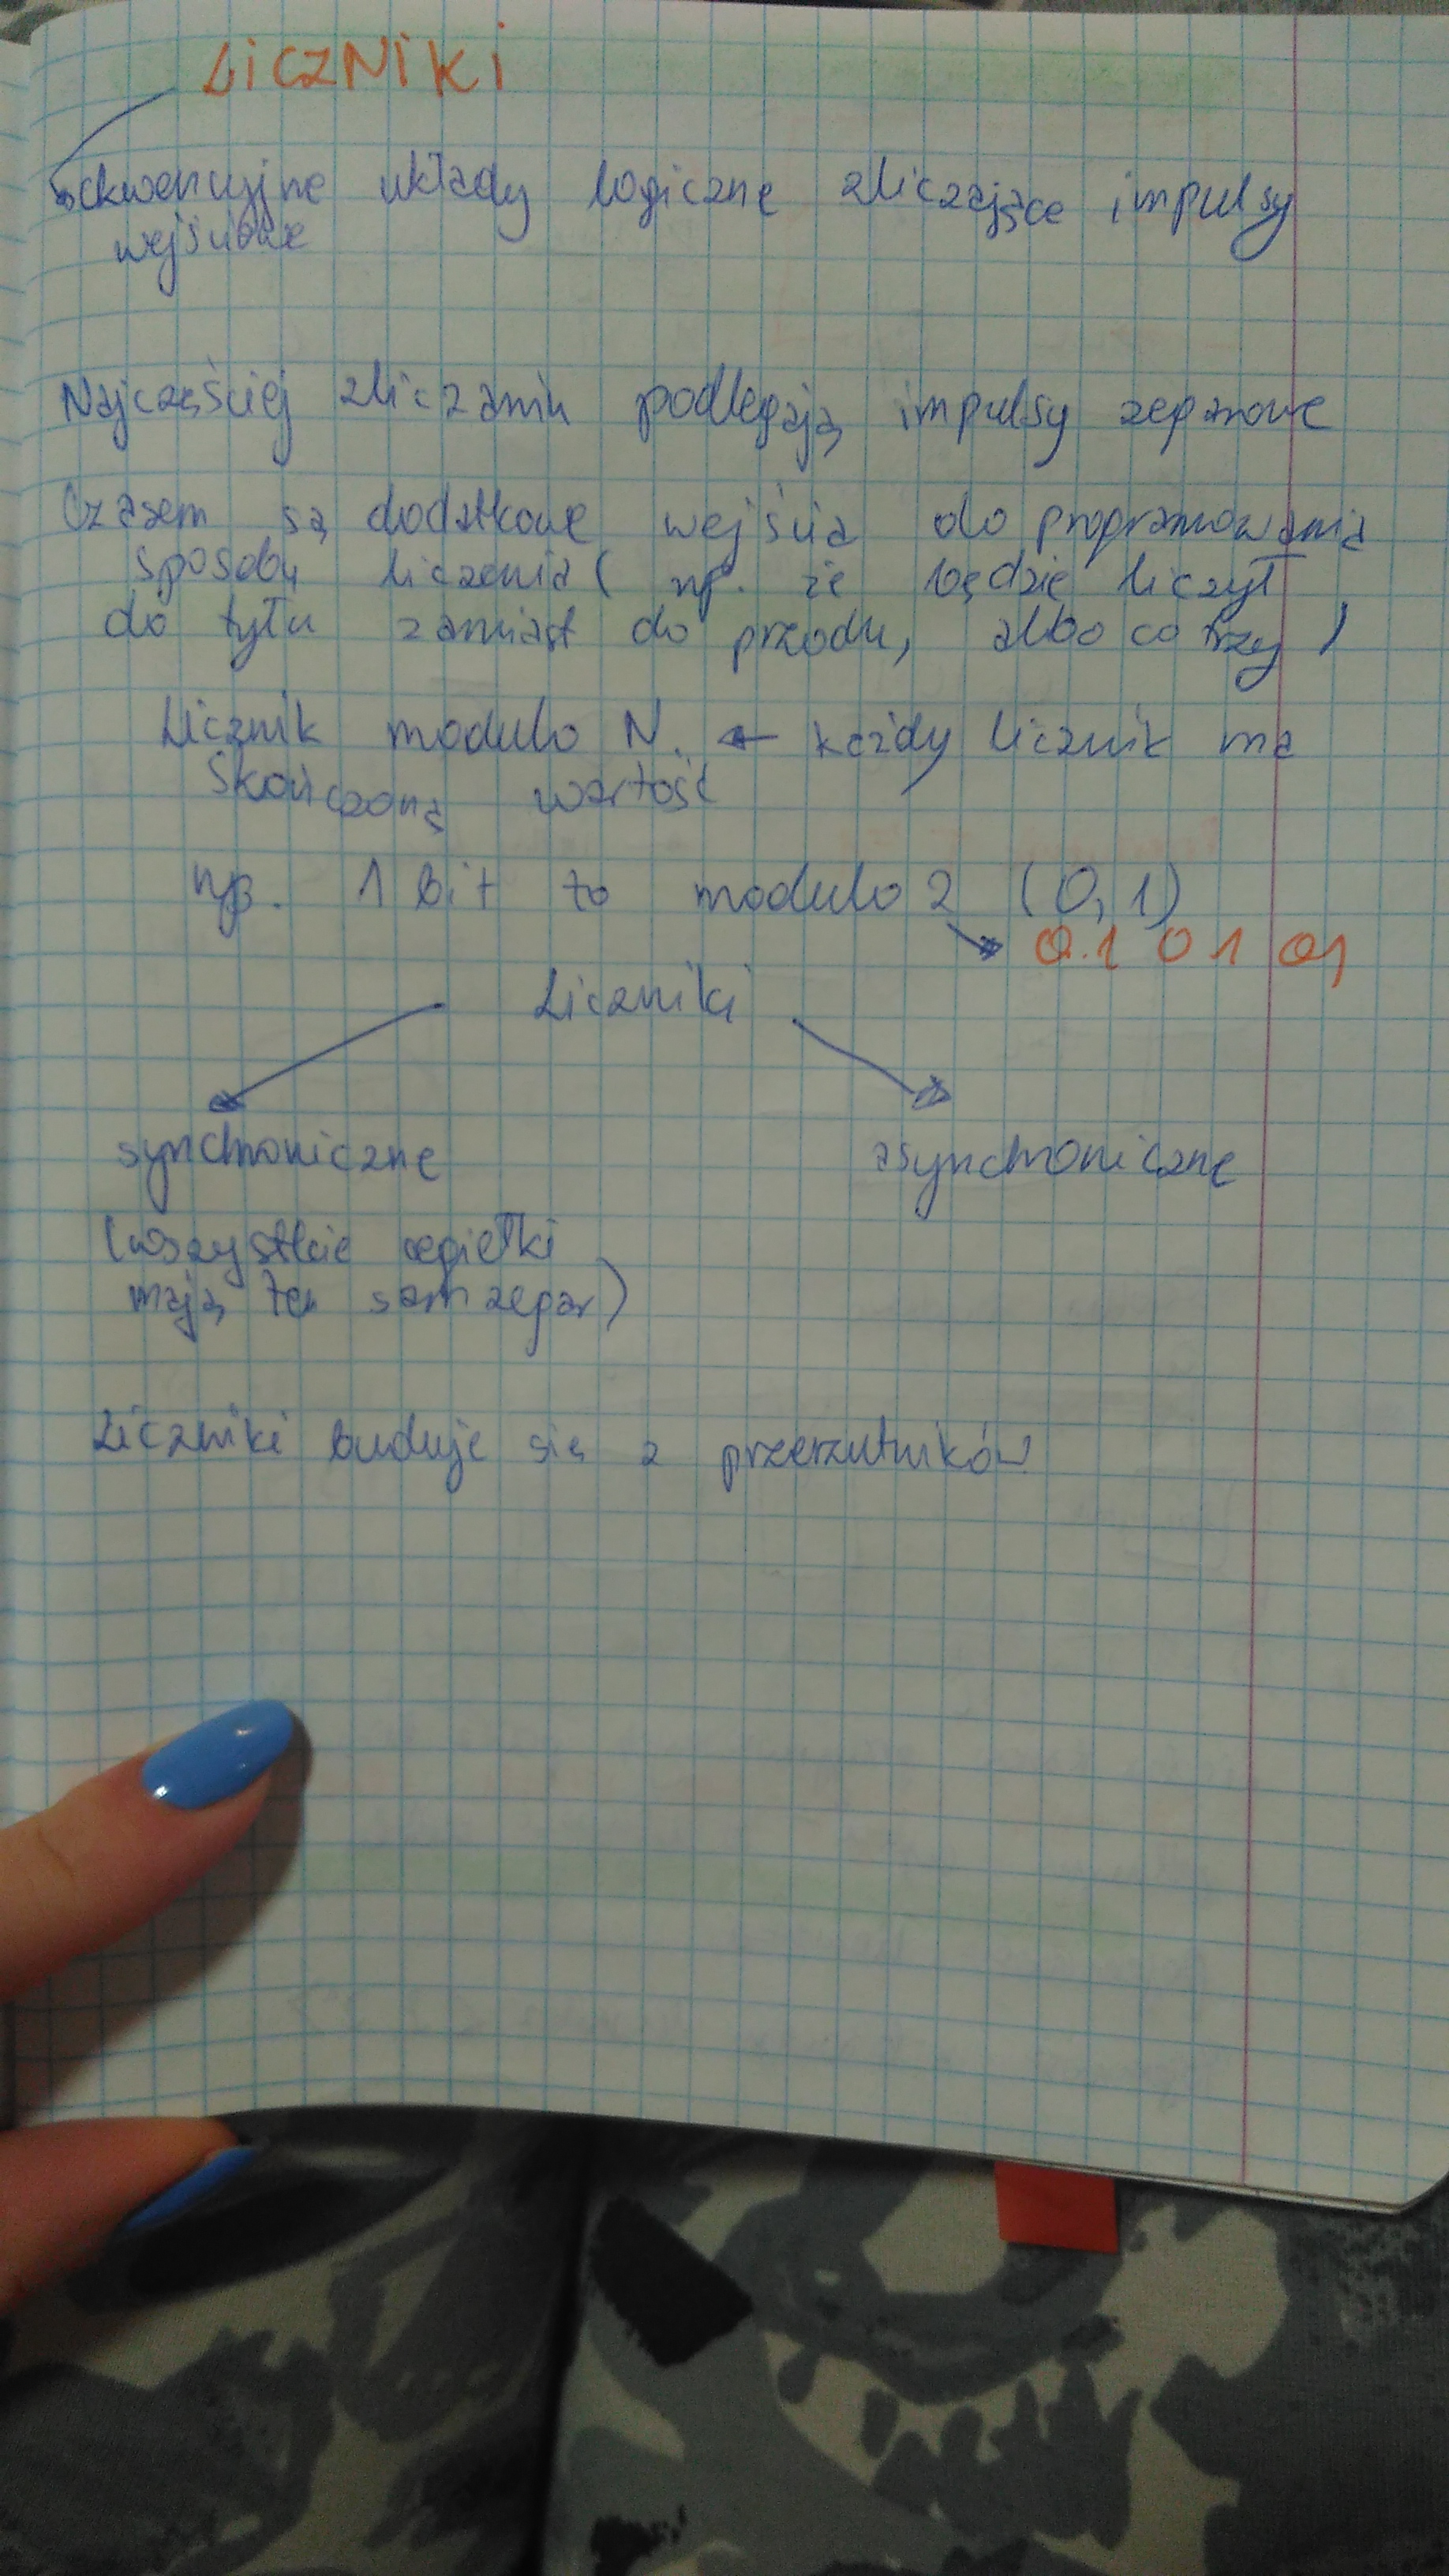 LICZNIKI
sekwencyjne układy logiczne zliczające impulsy
wejściowe
Najczęściej zliczaniu podlegają impulsy zegarowe
Czasem są dodatkowe wejścia do programowania
sposobu liczenia ( np. że będzie liczył
do tyłu zamiast do przodu, albo co trzy )
Licznik modulo N. ← każdy licznik ma
skończoną wartość
np. 1 bit to modulo 2 (0,1)
→ 0 1 0 1 01
Liczniki
synchroniczne asynchroniczne
(wszystkie cegiełki
mają ten sam zegar)
Liczniki buduje się z przerzutników